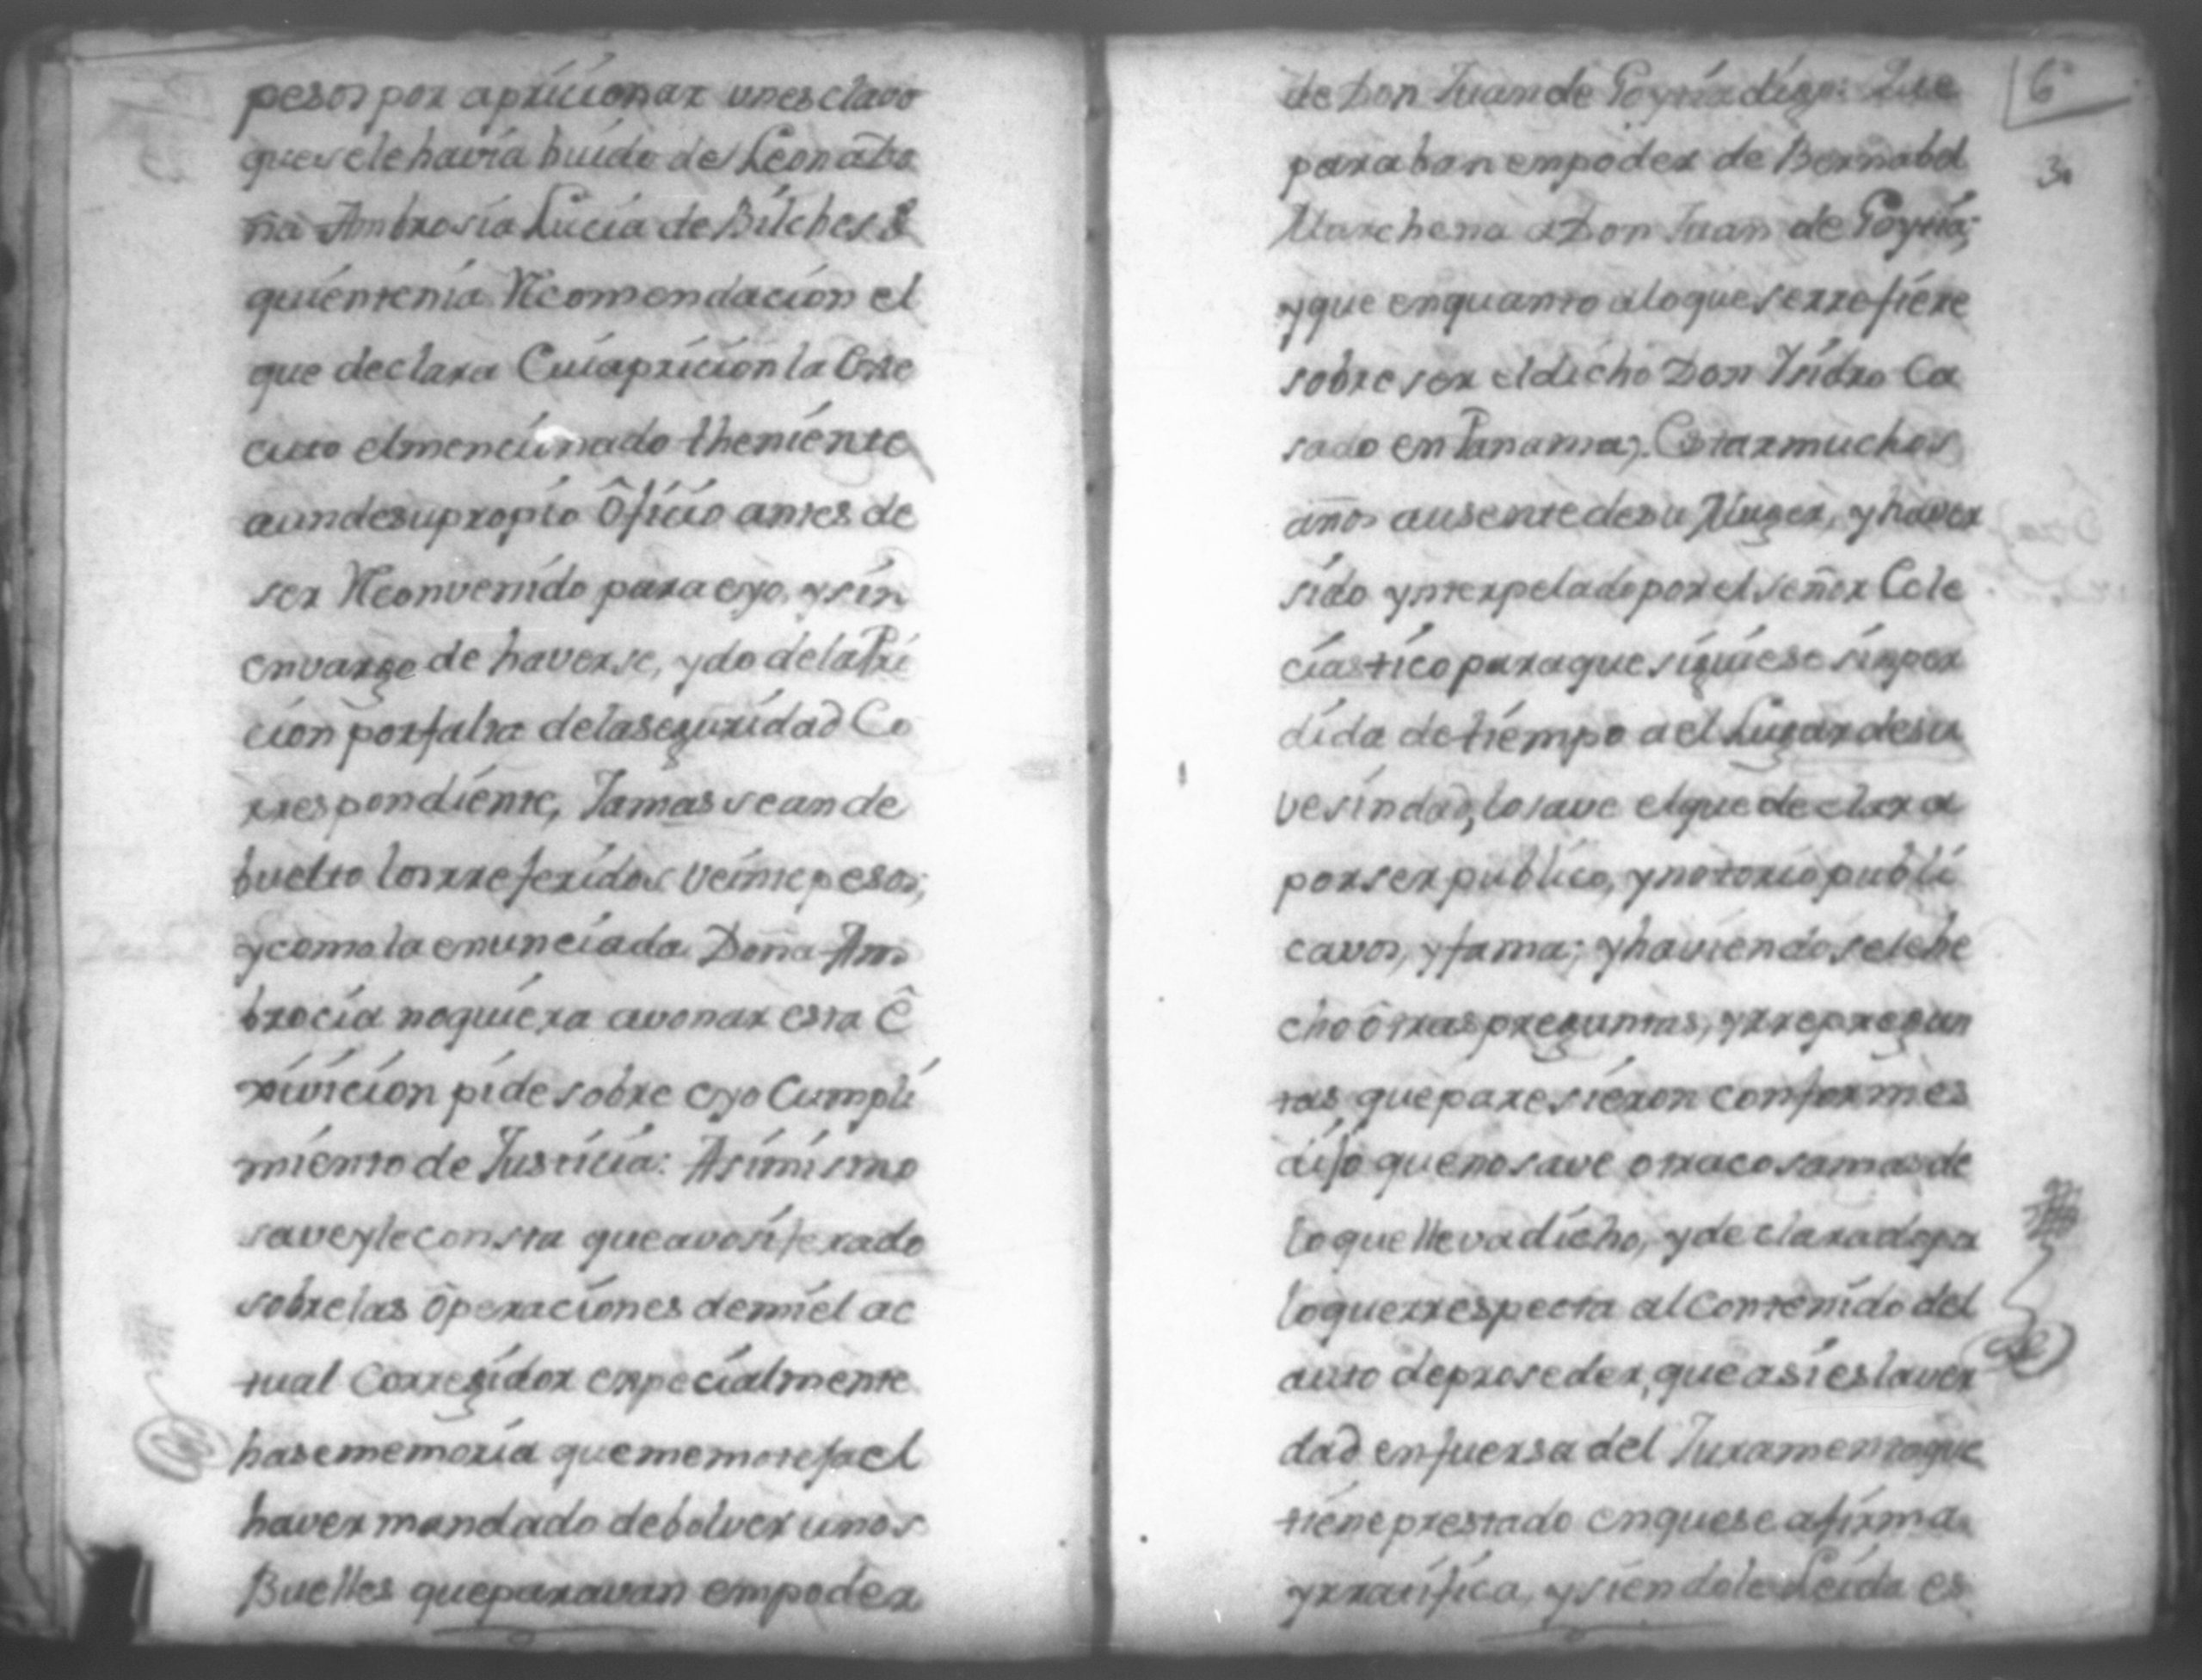 pesos por apricionar un esclavo
que se le havia huido de Leon a Do
ña Ambrosia Lucia de Bilches
quien tenia Recomendación el
que declara Cuia pricion la Exe
cuto el menciunado theniente
aun de su propio Oficio antes de
ser Reconvenido para eyo, y sin
envargo de haverse, ydo de la Pri
cion por falta de la seguridad Co
rrespondiente, Jamas se an de
buelto los rreferidos veinte pesos;
y como la enunciada Doña Am
brocia no quiera avonar esta E
xivicion pide sobre eyo Cumpli
miento de Justicia: Asimismo
save y le consta que a vosiferado
sobre las Operaciones de mi el ac
tual Corregidor expecialmente
hase memoria que me motefa el
haver mandado debolver unos
Bueltes que paravan em poder
de Don Juan de Goyria digo: Que
paraban em poder de Bernabel
Marchena a Don Juan de Goyria;
y que en quanto a lo que se rrefiere
sobre ser el dicho Don Ysidro Ca
sado en Panama; Estar muchos
años ausente de su Muger, y haver
sido ynterpelado por el señor Ecle
ciastico para que siguiese sin per
dida de tiempo a el Lugar de su
vesindad, lo save el que declara
por ser publico, y notorio publi
cavos, y fama; y haviendosele he
cho Otras preguntas, y rrepregun
tas que paresieron conformes
dijo que no save otra cosa mas de
lo que lleva dicho, y declarado pa
lo que rrespecta al Contenido del
auto de proseder, que asi es la ver
dad en fuersa del Juramento que
tiene prestado en que se afirma
y rratifica, y siendole Leida es
6
3.